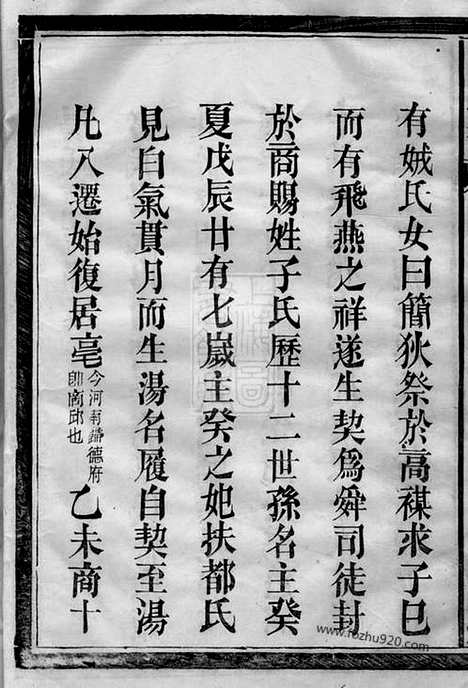 有娀氏女曰簡狄祭於高禖求子巳
而有飛燕之祥遂生契爲舜司徒封
於商賜姓子氏歷十二世孫名主癸
夏戊辰廿有七嵗主癸之妃扶都氏
見白氣貫月而生湯名履自契至湯
凡八遷始復居亳今河南歸德府即商邱也乙未商十
www.fozhu920.com